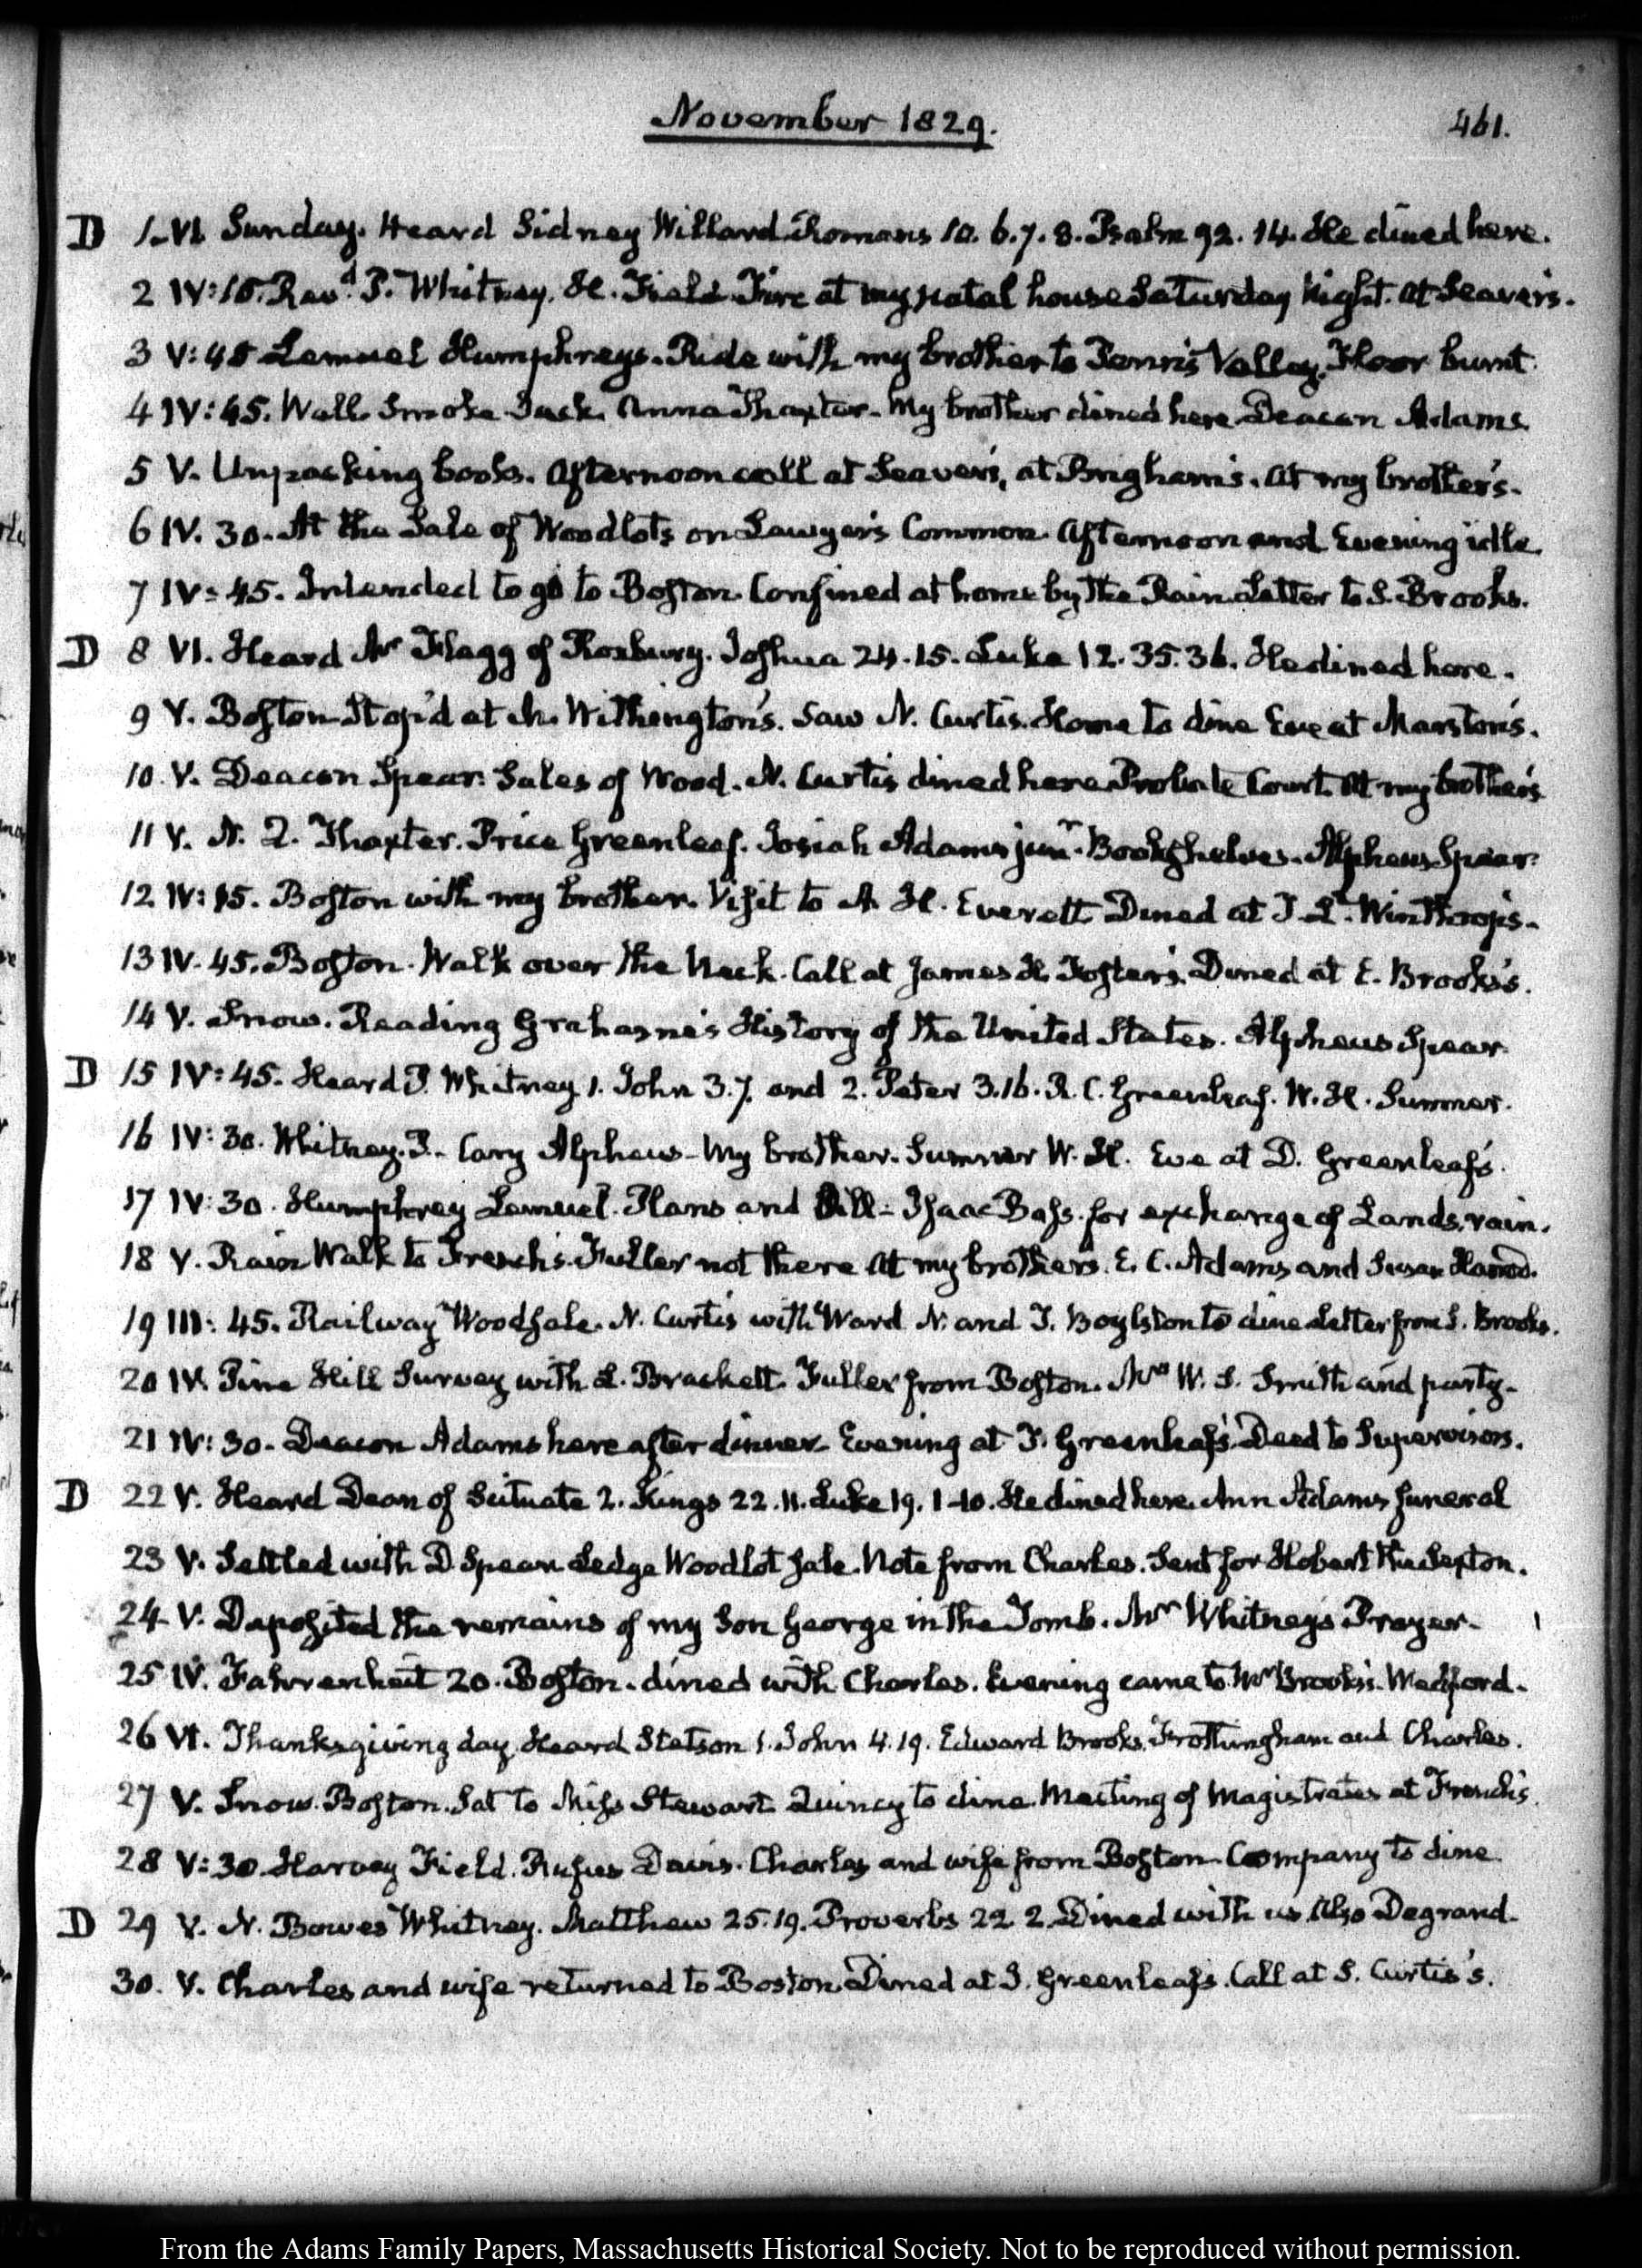 November 1829.
461.
D 1. VI. Sunday. Heard Sidney Willard Romans 10. 6.7.8. Psalm 92. 14. He dined here.
2 IV:15. Revd. P. Whitney. H. Field. Fire at my natal house Saturday Night. at Seaver's.
3 V:45 Lemuel Humphreys. Ride with my brother to Penn's Valley. Floor burnt.
4 IV:45. Well. Smoke Jack. Anna Thaxter. My brother dined here Deacon Adams.
5 V. Unpacking books. Afternoon call at Seaver's, at Brigham's. At my brother's.
6 IV. 30. At the Sale of Woodlots on Lawyer's Common. Afternoon and Evening idle.
7 IV:45. Intended to go to Boston. Confined at home by the Rain. Letter to S. Brooks.
D 8 VI. Heard Mr Flagg of Roxbury. Joshua 24.15. Luke 12. 35.36. He dined here.
9 V. Boston Stop'd at M. Withington's. Saw N. Curtis. Home to dine Eve at Marston's.
10. V. Deacon Spear. Sales of Wood. N. Curtis dined here Probate Court. At my brother's
11 V. N. Q. Thaxter. Price Greenleaf. Josiah Adams junr. Bookshelves. Alpheus Spear.
12 IV:15. Boston with my brother. Visit to A. H. Everett Dined at T. L. Winthrop's.
13 IV. 45. Boston. Walk over the Neck. Call at James H Foster's. Dined at E. Brooks's.
14 V. Snow. Reading Grahame's History of the United States. Alpheus Spear.
D 15 IV:45. Heard P. Whitney 1. John 3.7. and 2. Peter 3.16. R. C. Greenleaf. W. H. Sumner.
16 IV:30. Whitney. P. Cary Alpheus. My brother. Sumner W. H. Eve at D. Greenleaf's.
17 IV:30. Humphrey Lemuel. Plans and Bill. Isaac Bass. for exchange of Lands. rain.
18 V. Rain Walk to French's. Fuller not there At my brothers. E. C. Adams and Susan
19 III:45. Railway Woodsale. N. Curtis with Ward N. and J. Boylston to dine Letter from S. Brooks.
20 IV. Pine Hill Survey with L. Brackett. Fuller from Boston. Mrs W. S. Smith and party.
21 IV:30. Deacon Adams here after dinner. Evening at T. Greenleaf's. Deed to Supervisors.
D 22 V. Heard Dean of Scituate 2. Kings 22. 11. Luke 19. 1-10. He dined here. Ann Adams funeral
23 V. Settled with D. Spear Ledge Woodlot sale. Note from Charles. Sent for Hobart the Sexton.
24 V. Deposited the remains of my Son George in the Tomb. Mr Whitney's Prayer.
25 IV. Fahrenheit 20. Boston. dined with Charles. Evening came to Mr Brooks's. Medford.
26 VI. Thanksgiving day. Heard Stetson 1. John 4. 19. Edward Brooks, Frothingham and Charles.
27 V. Snow. Boston. Sat to Miss Stewart. Quincy to dine. Meeting of Magistrates at French's.
28 V:30. Harvey Field. Rufus Davis. Charles and wife from Boston. Company to dine
D 29 V. N. Bowes Whitney. Matthew 25.19. Proverbs 22. 2. Dined with us Also Degrand.
30. V. Charles and wife returned to Boston. Dined at T. Greenleaf's. Call at S. Curtis's.
From the Adams Family Papers, Massachusetts Historical Society. Not to be reproduced without permission.